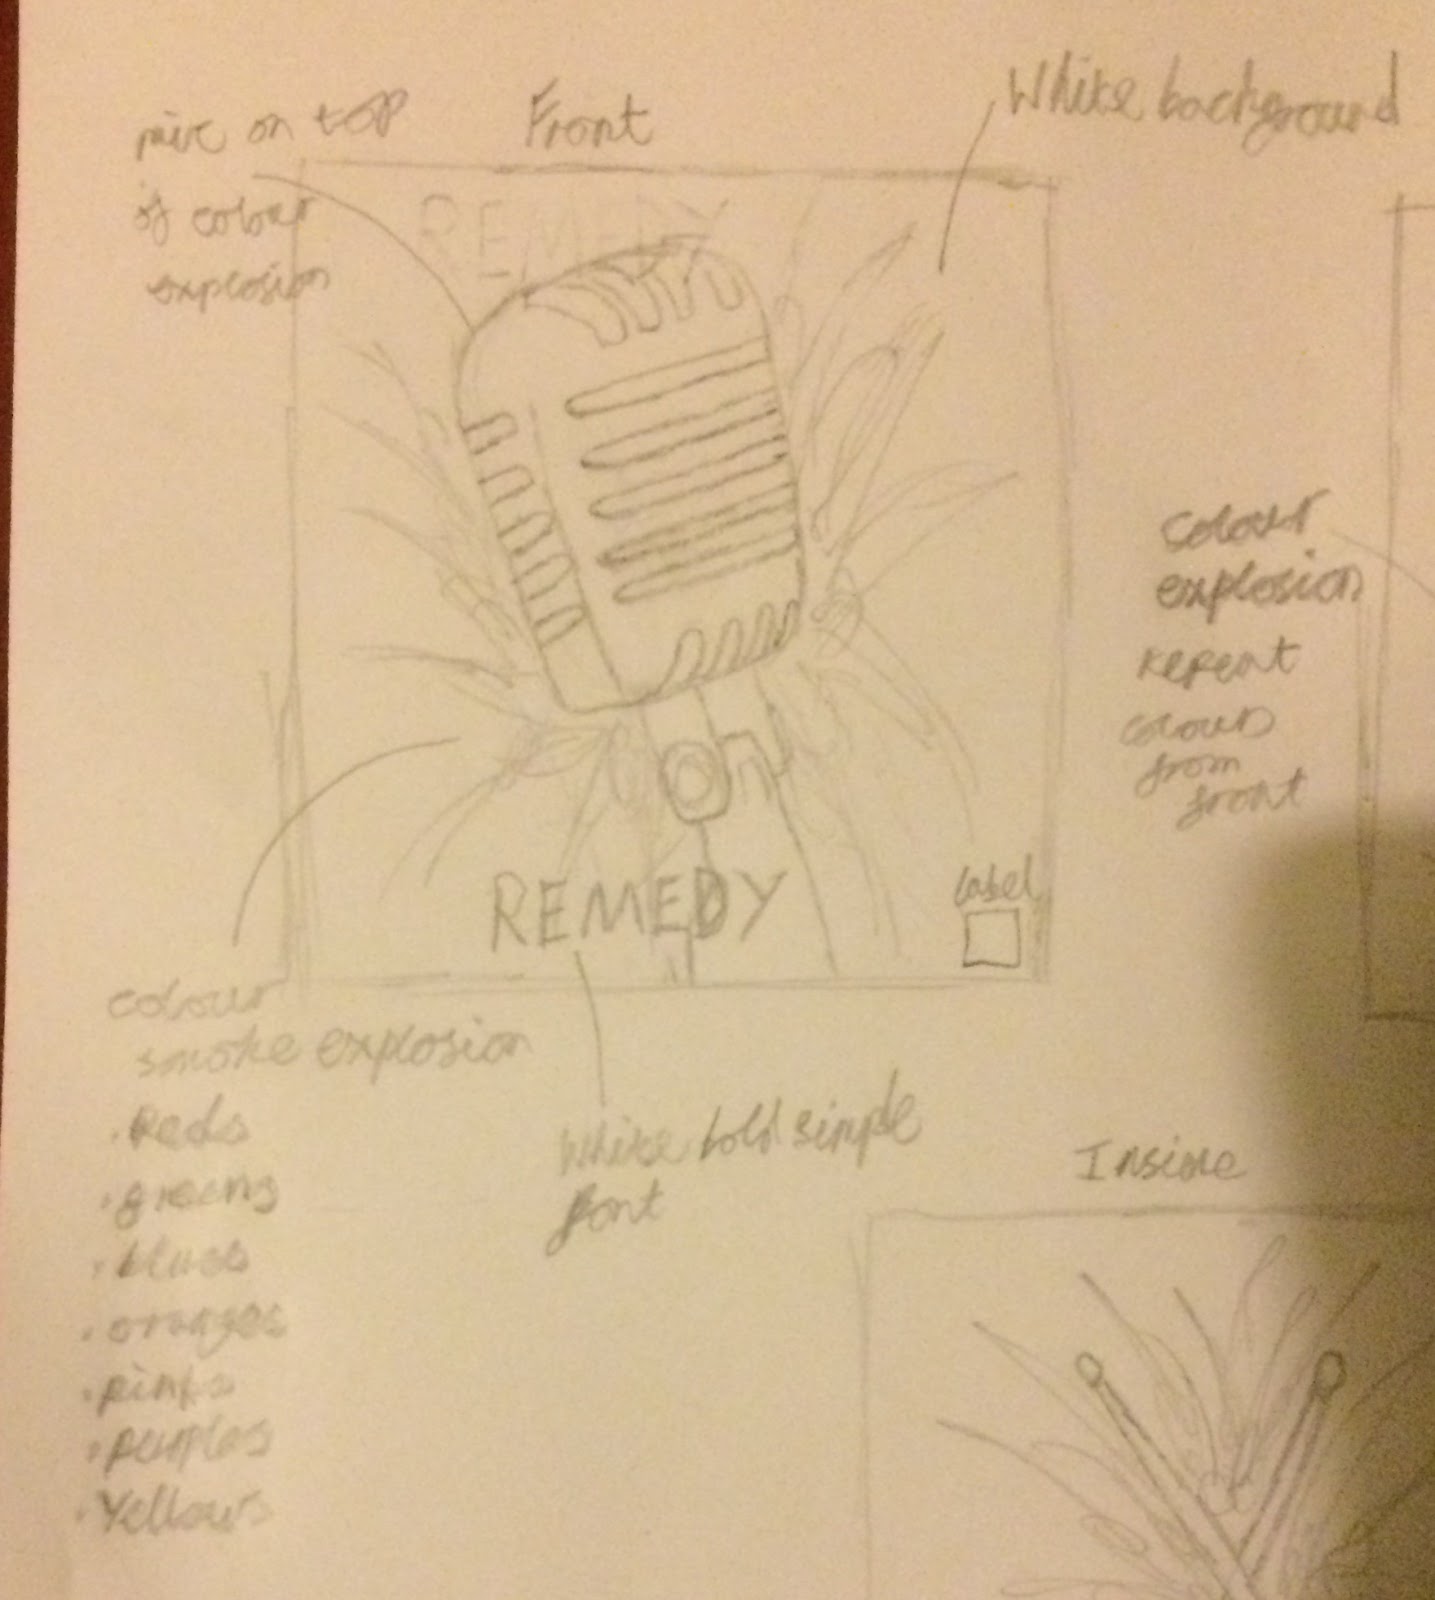 Front
White background
mic on top
of colour
explosion
REMEDY
colour
explosion
repeat
colours
from
front
label
REMEDY
colour
smoke explosion
• Reds
• greens
• blues
• oranges
• pinks
• purples
• Yellows
White bold simple
font
Inside